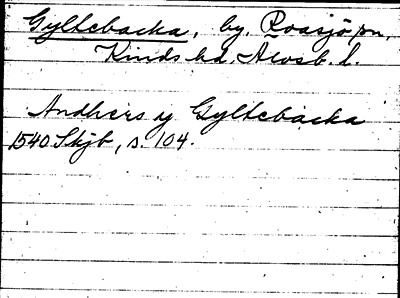 Gyltebacka, by, Roasjö sn,
Kinds hd, Älvsb. l.
Andhers y Gyltebacka
1540 Skjb, s. 104.